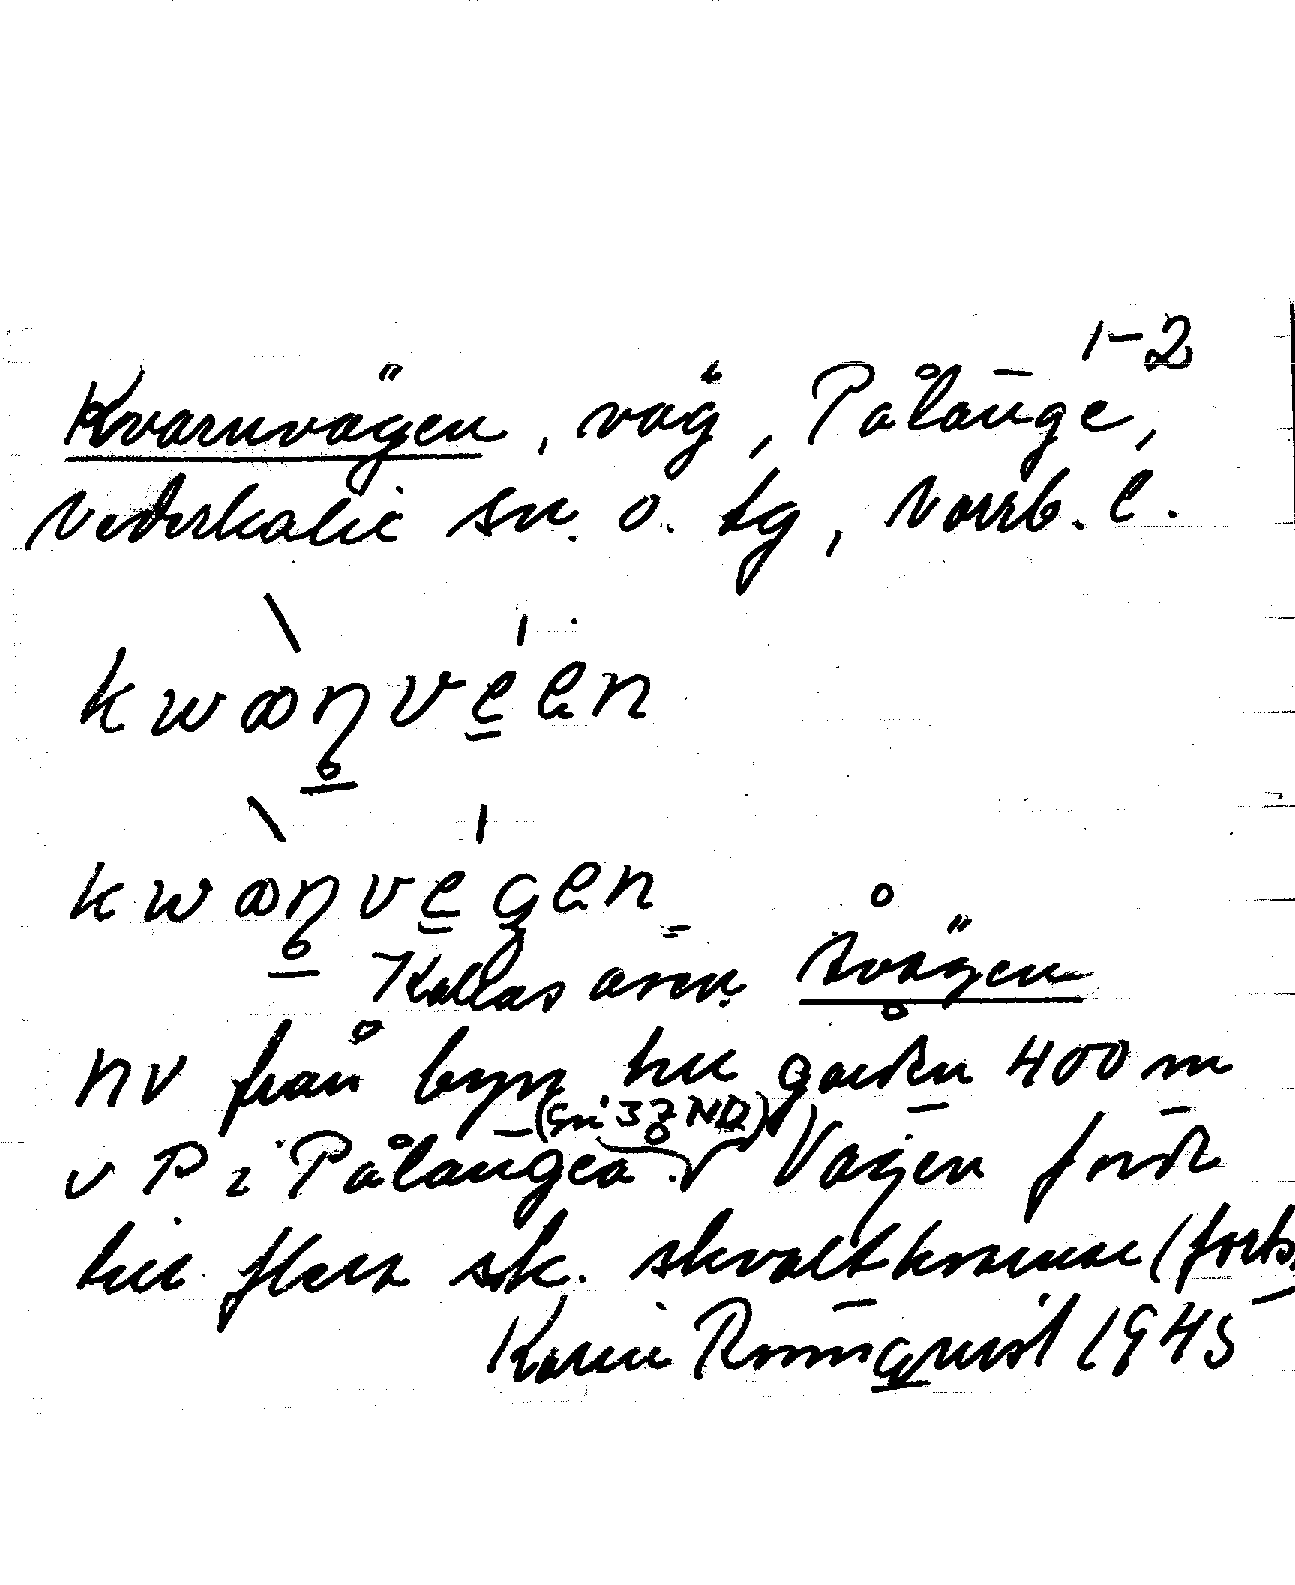 1-2
Kvarnvägen, väg, Pålänge,
Nederkalix sn. o. tg, Norrb. l.
kwæṇveen
kwæṇvegen
Kallas även Åvägen
NV från byn till gården 400 m
v P i Pålänge (Gri 3 g NO) Vägen förde
till flera sk. skvaltkvarnar (forts.
Karin Rönnqvist 1945